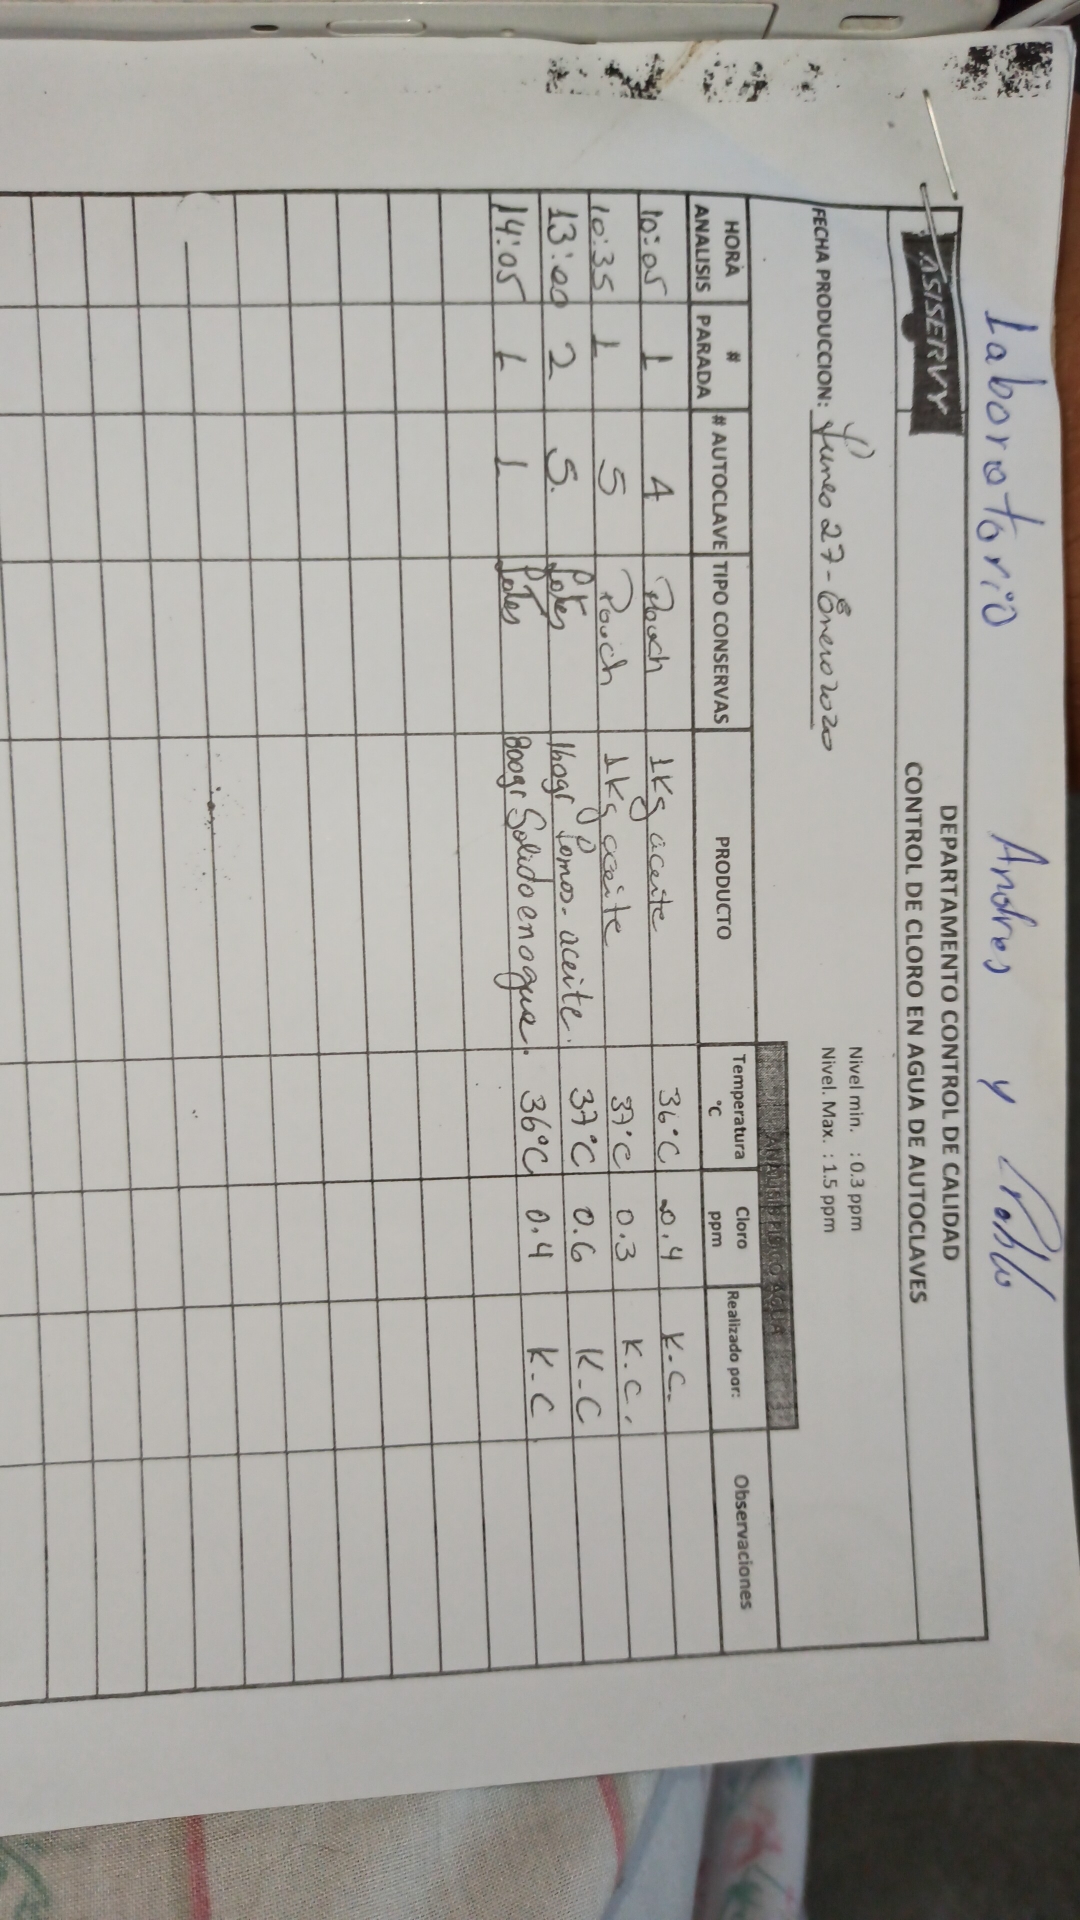 Laboratorio Andres y Pablo
ASISERVY
DEPARTAMENTO CONTROL DE CALIDAD
CONTROL DE CLORO EN AGUA DE AUTOCLAVES
Nivel min. : 0.3 ppm
FECHA PRODUCCION: Lunes 27-Enero 2020 Nivel. Max. : 1.5 ppm
ANALISIS FISICO AGUA
HORA ANALISIS # PARADA # AUTOCLAVE TIPO CONSERVAS PRODUCTO Temperatura °C Cloro ppm Realizado por: Observaciones
10:05 1 4 Pouch 1Kg aceite 36°C 0.4 K.C.
10:35 1 5 Pouch 1Kg aceite 37°C 0.3 K.C.
13:00 2 5. 160gr Lomos. aceite. 37°C 0.6 K-C
14:05 1 1 800gr Solido en agua. 36°C 0.4 K-C